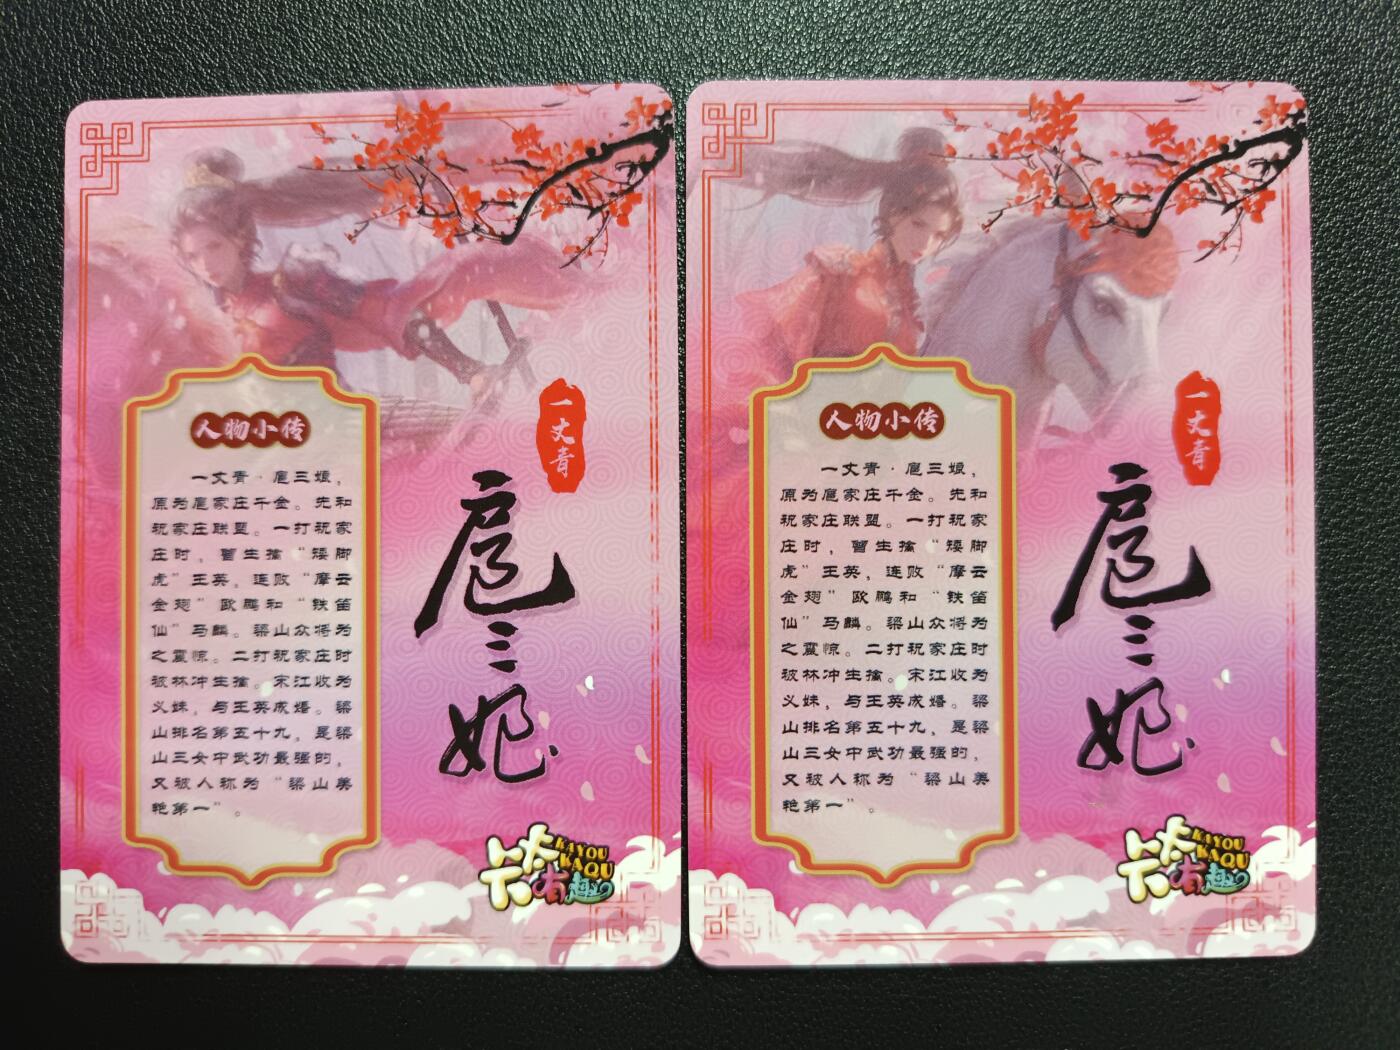 人物小传
一丈青·扈三娘，
原为扈家庄千金。先和
祝家庄联盟。一打祝家
庄时，曾生擒“矮脚
虎”王英，连败“摩云
金翅”欧鹏和“铁笛
仙”马麟。梁山众将为
之震惊。二打祝家庄时
被林冲生擒。宋江收为
义妹，与王英成婚。梁
山排名第五十九，是梁
山三女中武功最强的，
又被人称为“梁山美
艳第一”。
一丈青
扈三娘
KAYOU
KAQU
有趣
人物小传
一丈青·扈三娘，
原为扈家庄千金。先和
祝家庄联盟。一打祝家
庄时，曾生擒“矮脚
虎”王英，连败“摩云
金翅”欧鹏和“铁笛
仙”马麟。梁山众将为
之震惊。二打祝家庄时
被林冲生擒。宋江收为
义妹，与王英成婚。梁
山排名第五十九，是梁
山三女中武功最强的，
又被人称为“梁山美
艳第一”。
一丈青
扈三娘
KAYOU
KAQU
有趣